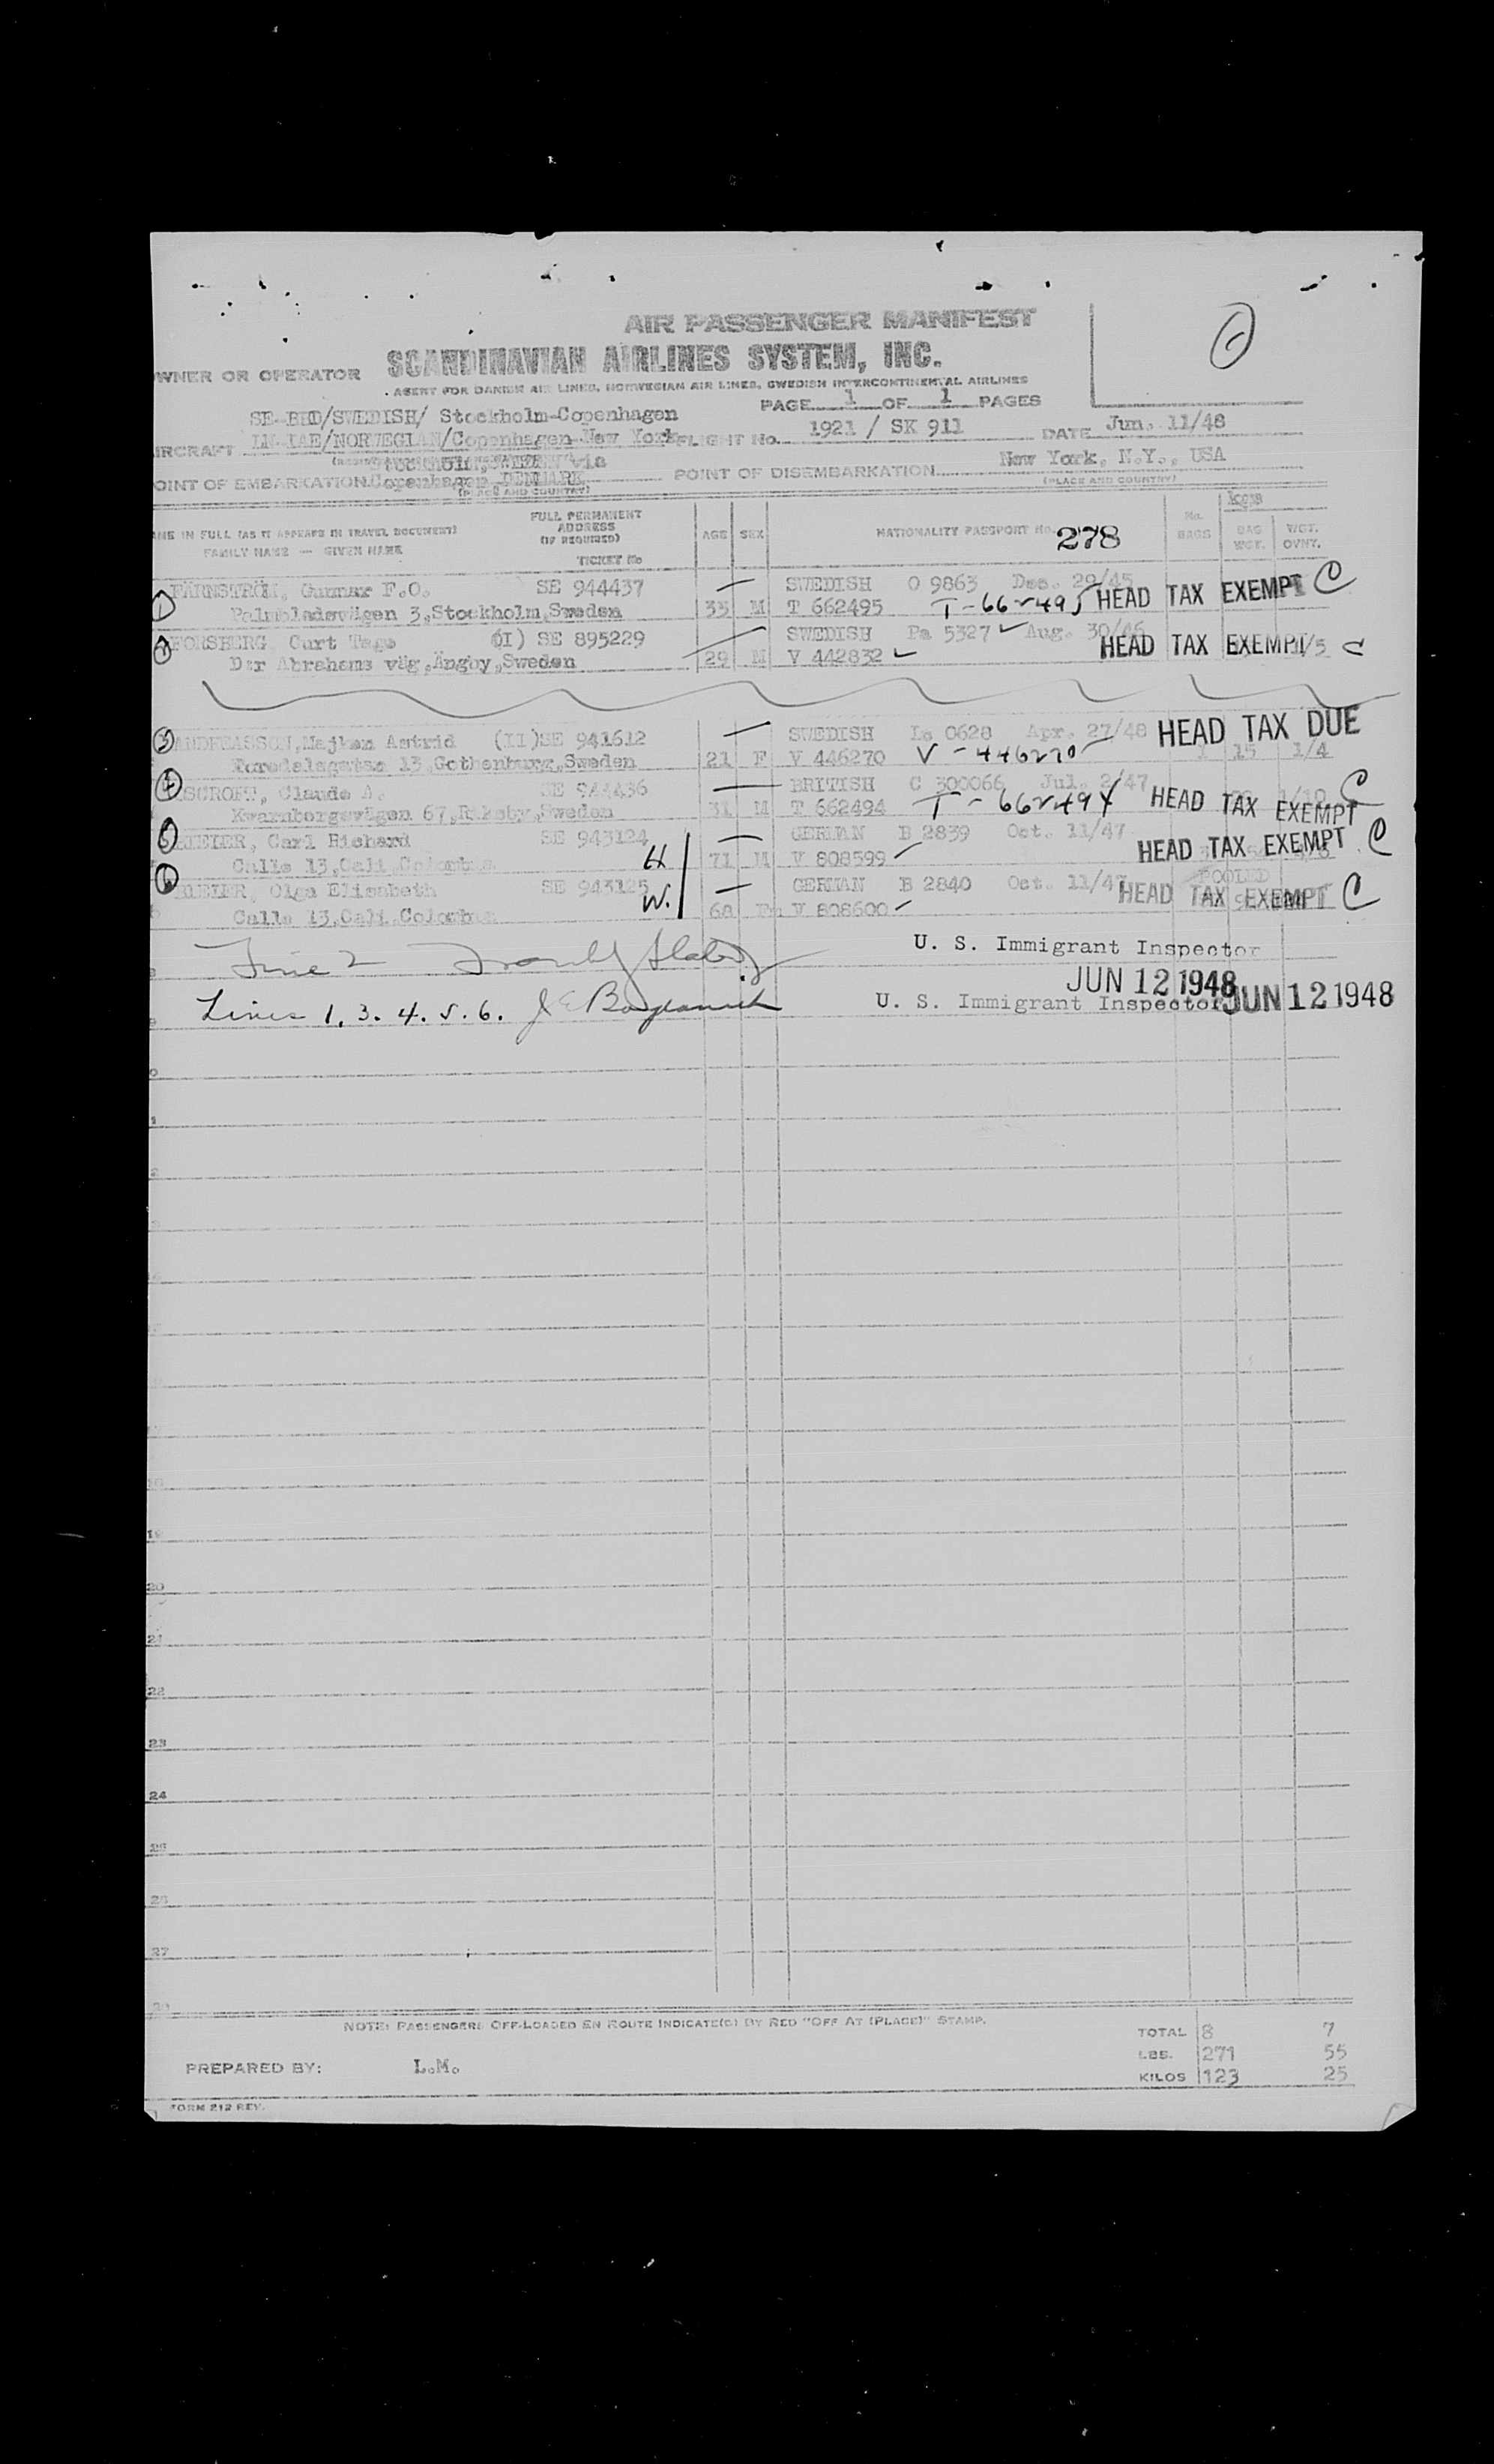 AIR PASSENGER MANIFEST
WNER OR OPERATOR SCANDINAVIAN AIRLINES SYSTEM, INC.
AGENT FOR DANISH AIR LINES, NORWEGIAN AIR LINES, SWEDISH INTERCONTINENTAL AIRLINES
PAGE 1 OF 1 PAGES
/SWEDISH/ Stockholm-Copenhagen
IRCRAFT LN-IAE/NORWEGIAN/Copenhagen-New York FLIGHT No. 1921 / SK 911 DATE Jun. 11/48
Stockholm, SWEDEN via
OINT OF EMBARKATION Copenhagen, DENMARK POINT OF DISEMBARKATION New York, N.Y., USA
(PLACE AND COUNTRY) (PLACE AND COUNTRY)
AME IN FULL (AS IT APPEARS IN TRAVEL DOCUMENT) FULL PERMANENT ADDRESS (IF REQUIRED) AGE SEX NATIONALITY PASSPORT No. 278 No. BAGS kgs BAG WGT. WGT. OVNT.
FAMILY NAME — GIVEN NAME TICKET No
1 FÄRNSTRÖM, Gunnar F.O. SE 944437 SWEDISH O 9863 Dec. 29/45 HEAD TAX EXEMPT C
Palmbladsvägen 3, Stockholm, Sweden 33 M T 662495 T-662495
FORSBERG, Curt Tage SE 895229 SWEDISH Pa 5327 Aug. 30/46 HEAD TAX EXEMPT C
Abrahams väg, Ängby, Sweden 29 M V 442832
3 ANDREASSON, Majken Astrid (II) SE 941612 SWEDISH Lo 0628 Apr. 27/48 HEAD TAX DUE
13, Gothenburg, Sweden 21 F V 446270 V-446270 1 15 1/4
4 SCROFT, Claude A. SE 944436 BRITISH C 300066 Jul. 2/47 HEAD TAX EXEMPT C
Kvarnborgsvägen 67, Sweden 31 M T 662494 T-662494
5 EIER, Carl Richard SE 943124 H GERMAN B 2839 Oct. 11/47 HEAD TAX EXEMPT C
Calle 13, Cali, 71 M V 808599
6 EIER, Olga Elisabeth SE 943125 W. GERMAN B 2840 Oct. 11/47 POOLED HEAD TAX EXEMPT C
Calle 13, Cali, 68 V 808600
Line 2 U. S. Immigrant Inspector
JUN 12 1948
Lines 1. 3. 4. 5. 6. U. S. Immigrant Inspector JUN 12 1948
19
20
21
22
23
24
25
26
27
28
NOTE: PASSENGERS OFF-LOADED EN ROUTE INDICATE(D) BY RED "OFF AT (PLACE)" STAMP.
TOTAL 8 7
LBS. 271 55
PREPARED BY: L.M. KILOS 123 25
FORM 212 REV.